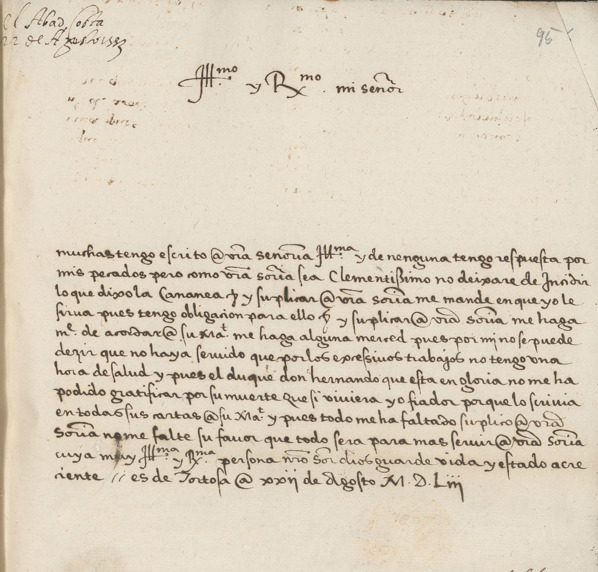 el Abad Costa
22 de Agosto 1553
95
Ill.mo y R.mo mi señor
muchas tengo escrito @ vra señoria Ill.ma y de nenguna tengo respuesta por
mis pecados pero como vra soria sea Clementissimo no deixare de
lo que dixo la Cananea y suplicar @ vra soria me mande en que yo le
sirva pues tengo obligacion para ello y suplicar @ vra soria me haga
m.d de acordar @ su Ma.t me haga alguna merced pues por mi no se puede
dezir que no haya seruido que por los excessivos trabajos no tengo una
hora de salud y pues el duque don hernando que esta en gloria no me ha
podido gratificar por su muerte que si viviera yo fiador porque lo scrivia
en todas sus cartas @ su Ma.t y pues todo me ha faltado suplico @ vra
soria no me falte su favor que todo sera para mas seruir @ vra soria
cuya muy Ill.ma y R.ma persona nro sor dios guarde vida y estado acre
ciente // es de Tortosa @ xxii de Agosto M.D.Liii